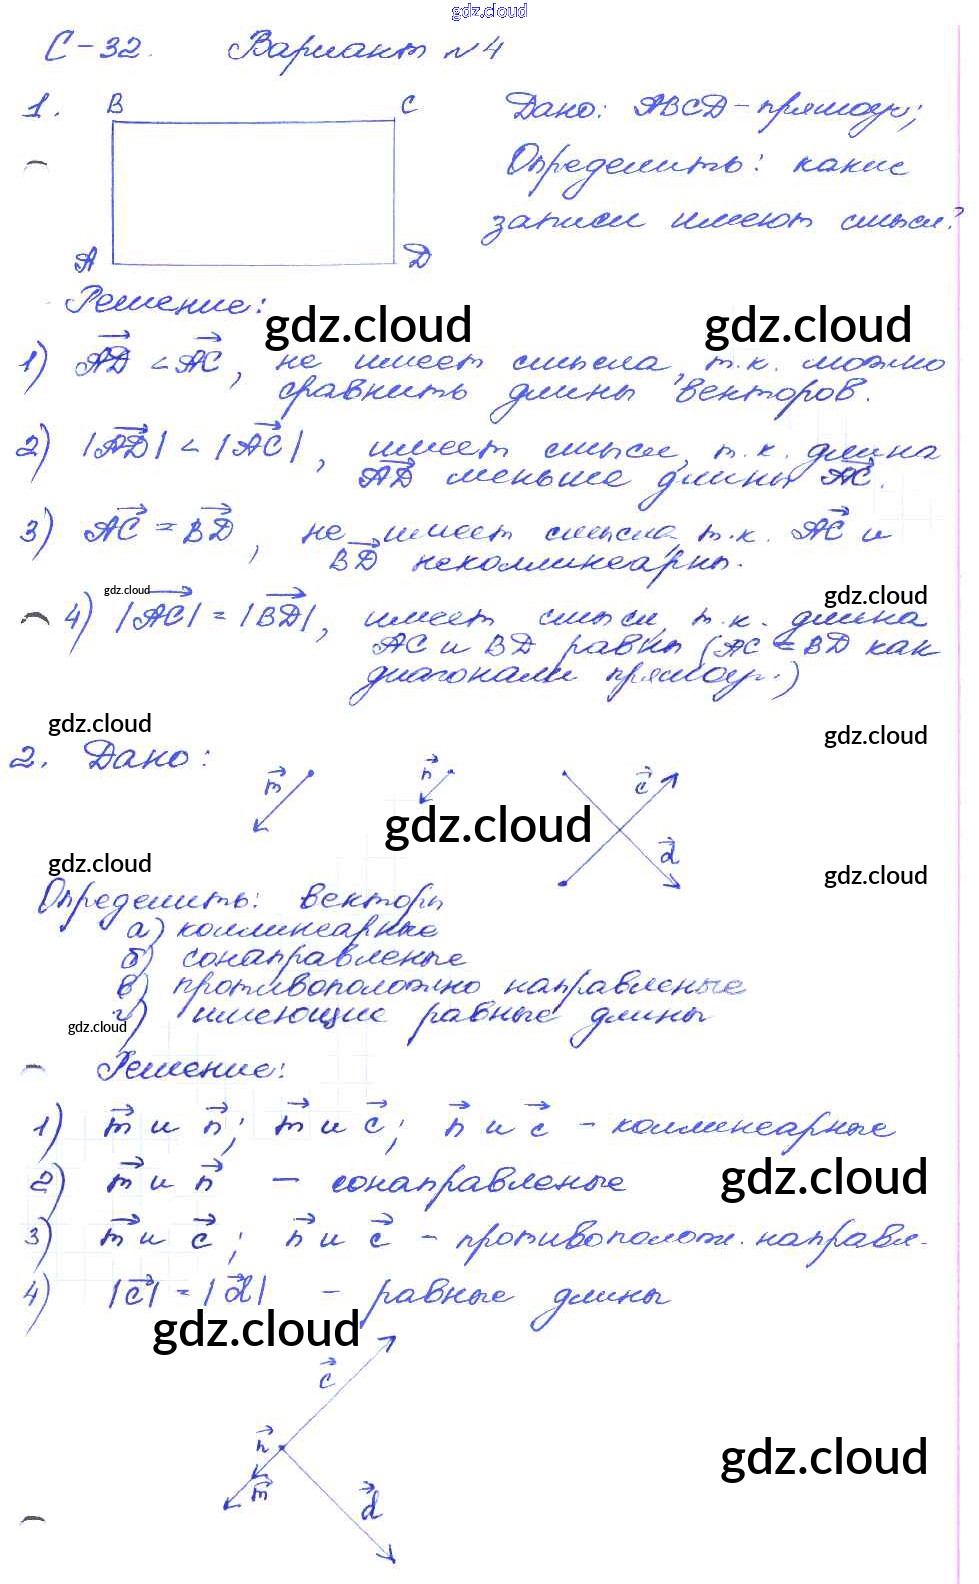 gdz.cloud
С-32. Вариант №4
1. B C Дано: ABCD - прямоуг;
Определить: какие
записи имеют смысл?
A D
Решение:
gdz.cloud gdz.cloud
1) AD < AC, не имеет смысла, т.к. можно
сравнить длины векторов.
2) |AD| < |AC|, имеет смысл, т.к. длина
AD меньше длины AC.
3) AC = BD, не имеет смысла, т.к. AC и
BD неколлинеарны.
gdz.cloud gdz.cloud
4) |AC| = |BD|, имеет смысл, т.к. длина
AC и BD равны (AC = BD как
диагонали прямоуг.)
gdz.cloud gdz.cloud
2. Дано:
m n c
gdz.cloud
d
gdz.cloud gdz.cloud
Определить: векторы
а) коллинеарные
б) сонаправленые
в) противоположно направленые
г) имеющие равные длины
gdz.cloud
Решение:
1) m и n; m и c; n и c - коллинеарные
gdz.cloud
2) m и n - сонаправленые
3) m и c; n и c - противополож. направл.
4) |c| = |d| - равные длины
gdz.cloud
c
n
gdz.cloud
m d